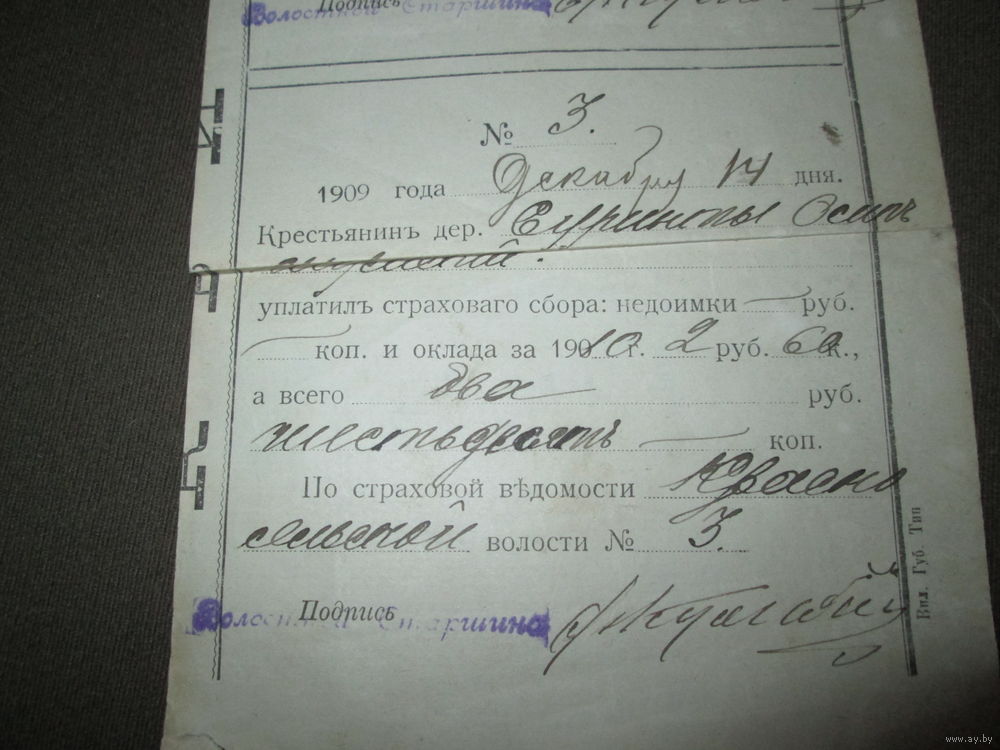 Подпись
Волостной Старшина
№ 3.
1909 года Декабру 14 дня.
Крестьянинъ дер. Осипъ
уплатилъ страховаго сбора: недоимки — руб.
— коп. и оклада за 1910 г. 2 руб. 60 к.,
а всего два руб.
шестьдесятъ — коп.
По страховой вѣдомости Красно
сельской волости № 3.
Подпись
Волостной Старшина
Вил. Губ. Тип
www.ay.by